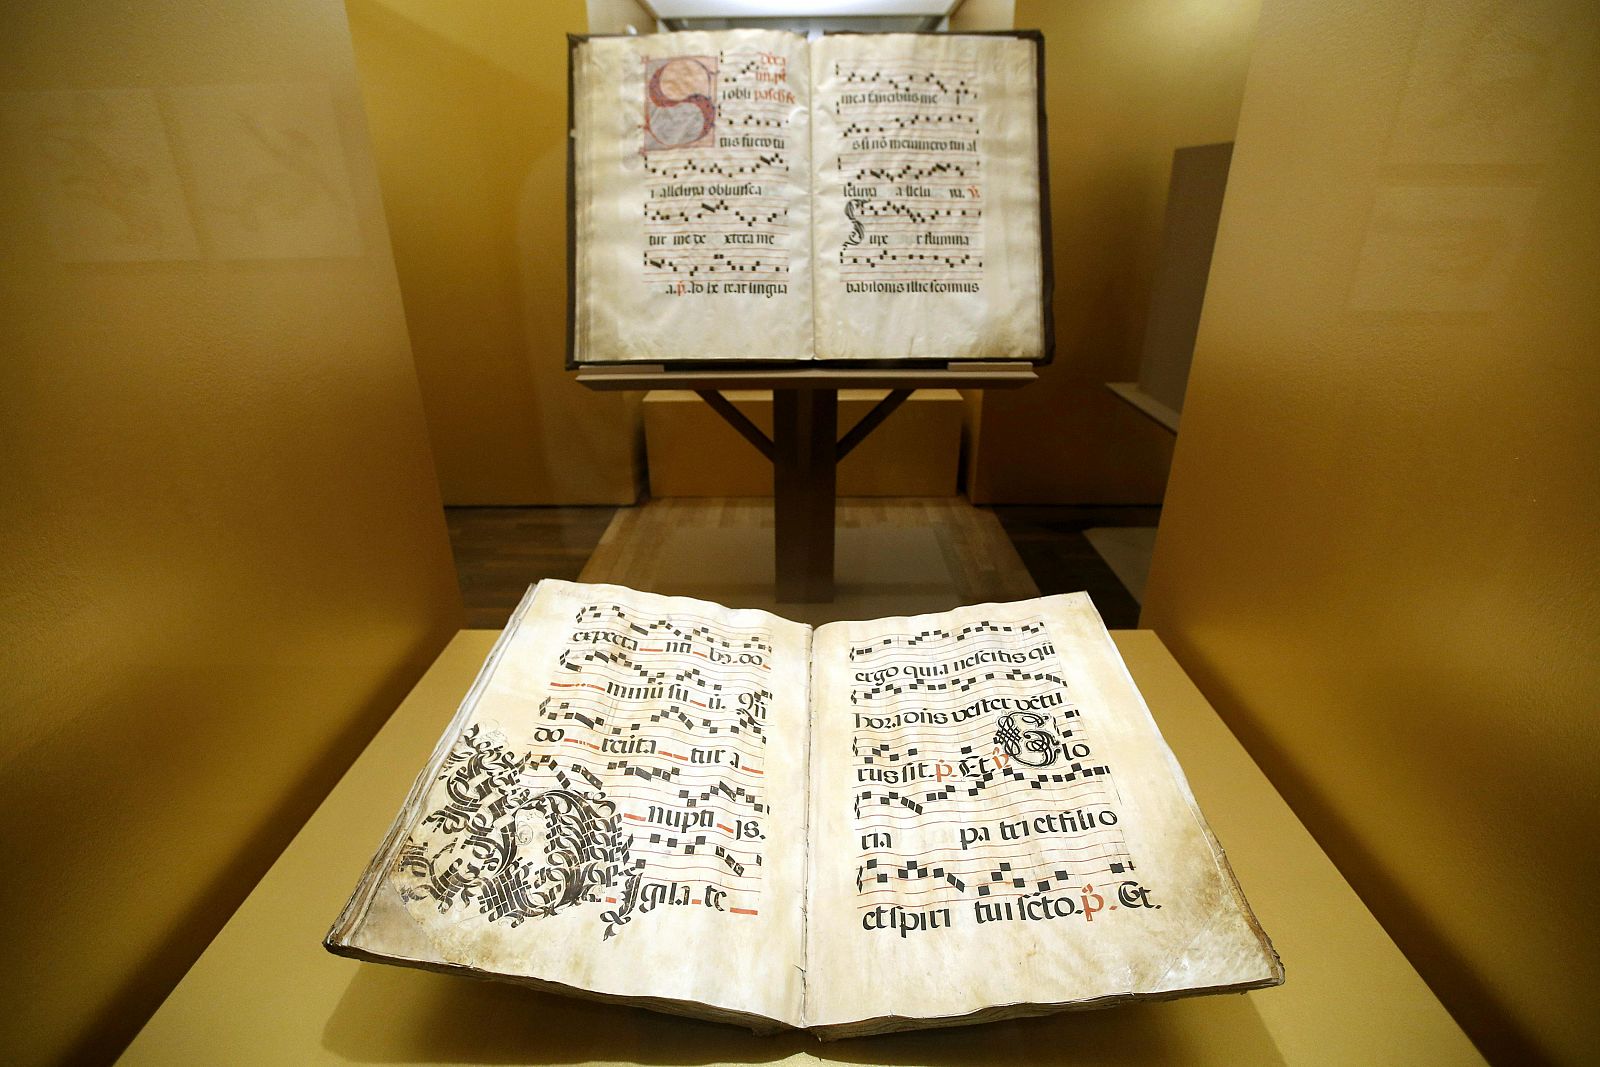 S
iobli pasch
tus fuero tu
i alleluya obliuisca
tur me de xtera me
a. p. ad he reat lingua
mea faucibus me
si nō meminero tui al
leluya allelu ya. v.
Supe r flumina
babilonis illic sedimus
expecta nti bo do
minū su ū.
do reuita tur a
nupti is.
igila te
ergo quia nescitis qū
hora dn̄s vester vētu
rus sit. p. Et. v. Glo
ria pa tri et filio
et spiri tui scto. p. Et.